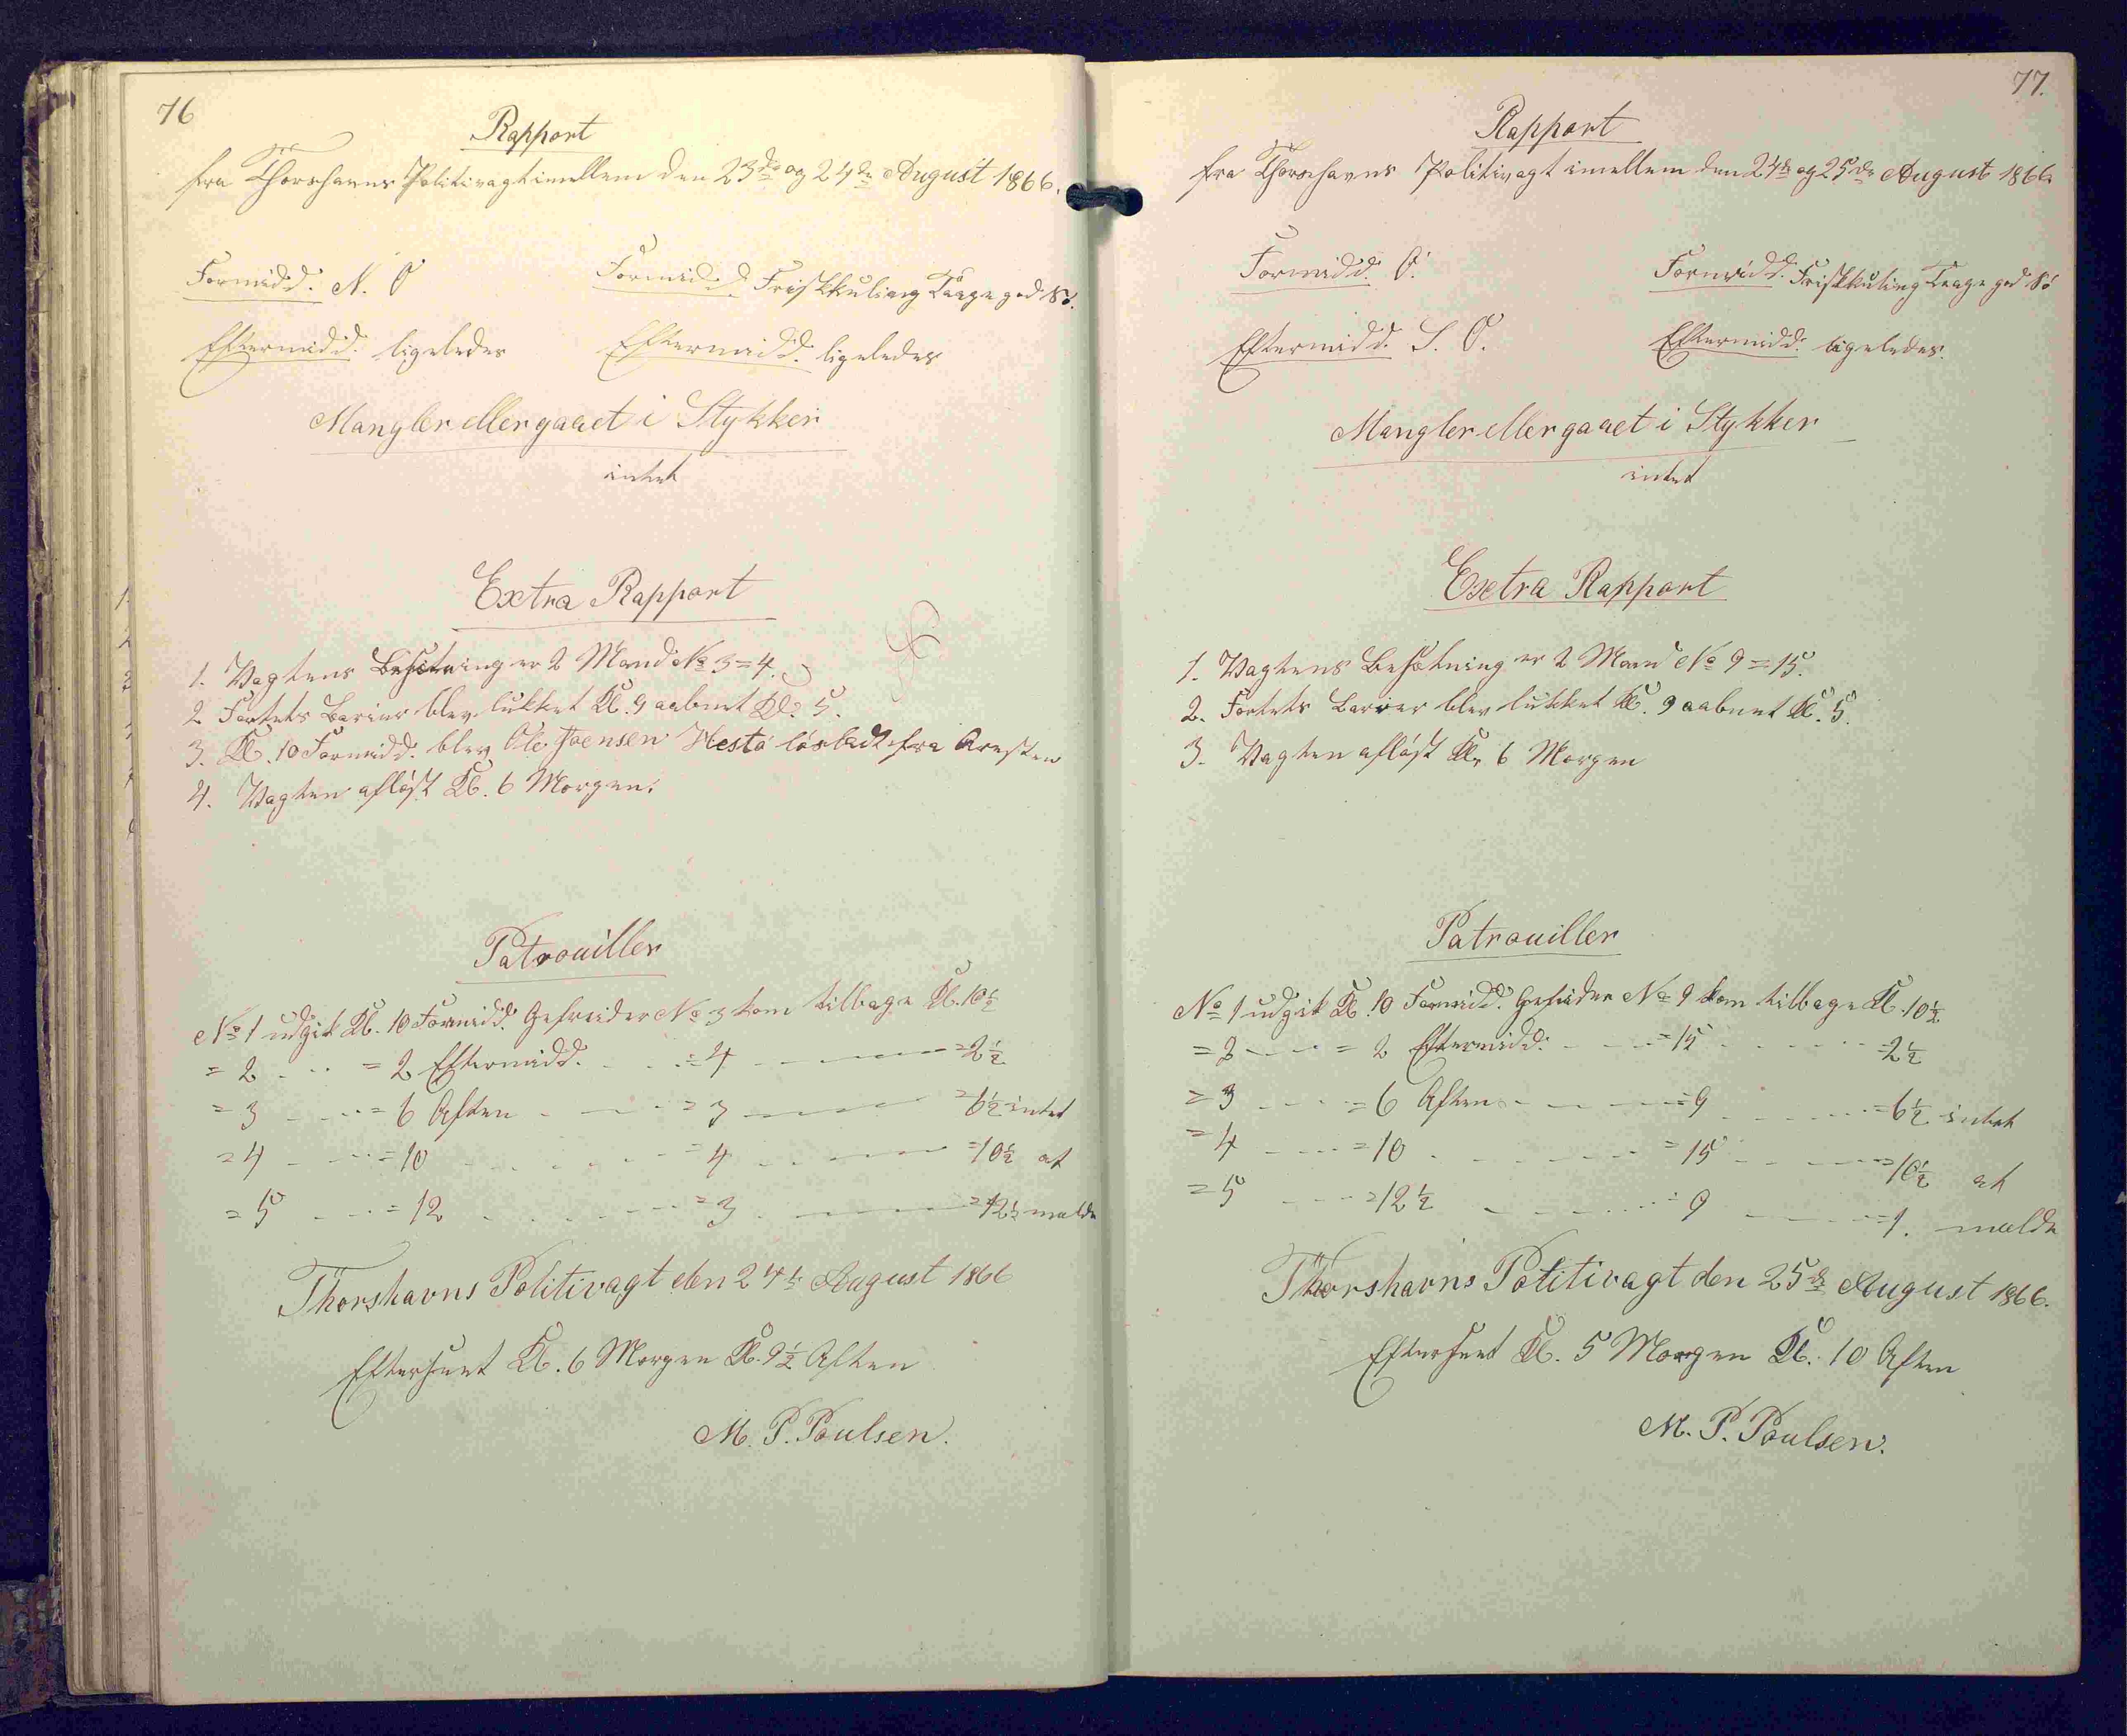 76
Rapport
fra Thorshavns Politivagt imellem den 23de og 24de August 1866.
Formidd. N. O Formidd. Frisk kuling Taage god Sö.
Eftermidd. ligeledes Eftermidd. ligeledes
Mangler eller gaaet i Stykker
intet
Extra Rapport
1. Vagtens Besætning er 2 Mand No 3 = 4.
2 Fortets Barier blev lukket Kl. 9 aabnet Kl. 5.
3. Kl. 10 Formidd. blev Ole Joensen Hestö lösladt fra Aresten
4. Vagten aflöst Kl. 6 Morgen.
Patrouiller
No 1 udgik Kl. 10 Formidd. Gefreider No 3 kom tilbage Kl. 10½
= 2 - - - = 2 Eftermidd. - - = 4 - - - = 2½
= 3 - - - = 6 Aften - - - = 3 - - - = 6½ intet
= 4 - - - = 10 - - - = 4 - - - = 10½ at
= 5 - - - = 12 - - - = 3 - - - = 12½ melde
Thorshavns Politivagt den 24de August 1866
Efterseet Kl. 6 Morgen Kl. 9½ Aften
M. P. Poulsen.
77.
Rapport
fra Thorshavns Politivagt imellem den 24de og 25de August 1866
Formidd. O. Formidd. Frisk kuling Taage god Sö
Eftermidd. S. O. Eftermidd. ligeledes.
Mangler eller gaaet i Stykker
intet
Exetra Rapport
1. Vagtens Besætning er 2 Mand No 9 = 15.
2. Fortets Barier blev lukket Kl. 9 aabnet Kl. 5.
3. Vagten aflöst Kl. 6 Morgen
Patrouiller
No 1 udgik Kl. 10 Formidd. Gefreider No 9 kom tilbage Kl. 10½
= 2 - - - = 2 Eftermidd. - - = 15 - - - = 2½
= 3 - - - = 6 Aften - - - = 9 - - - = 6½ intet
= 4 - - - = 10 - - - = 15 - - - = 10½ at
= 5 - - - = 12½ - - - = 9 - - - = 1. melde
Thorshavns Politivagt den 25de August 1866.
Efterseet Kl. 5 Morgen Kl. 10 Aften
M. P. Poulsen.